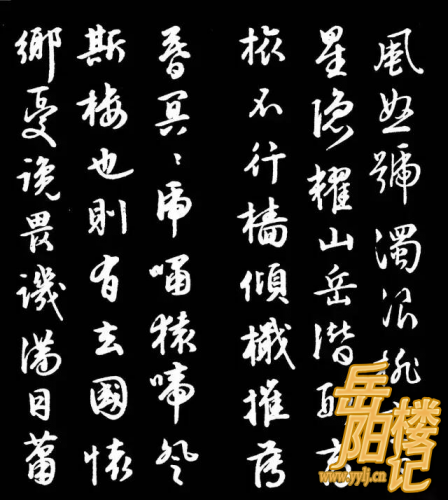 風怒號濁浪排
星隐耀山岳潛形
旅不行檣傾檝摧薄
暮冥〻虎嘯猿啼登
斯楼也則有去國懷
鄉憂讒畏譏滿目蕭
岳阳楼记
www.yylj.cn